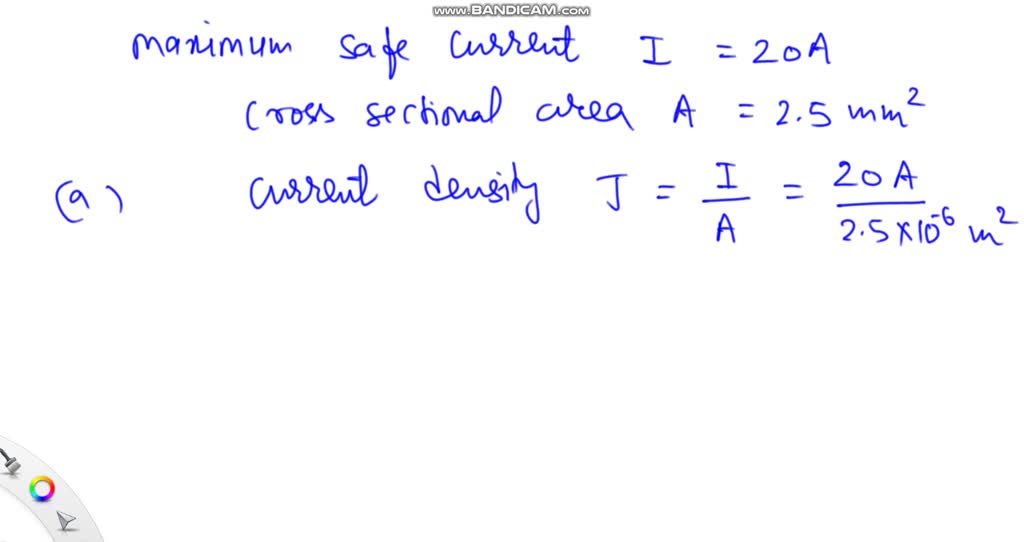 www.BANDICAM.com
maximum safe current I = 20A
cross sectional area A = 2.5 mm²
(a) current density J = I/A = 20A/2.5×10⁻⁶ m²